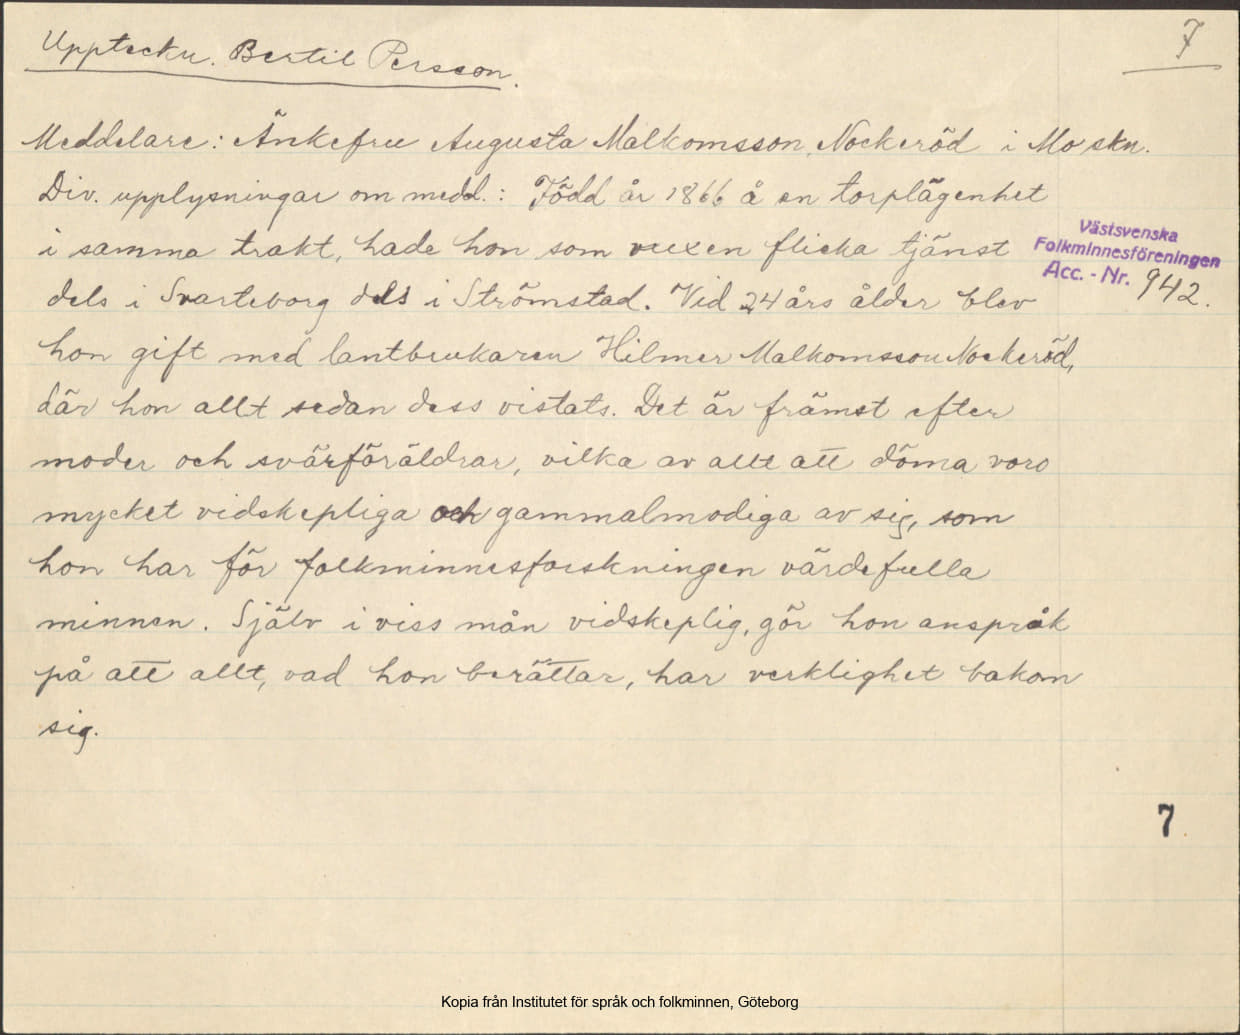 7
Uppteckn. Bertil Persson.
Meddelare: Änkefru Augusta Malkomsson, Nockeröd i Mo skn.
Div. upplysningar om medd.: Född år 1866 å en torplägenhet
i samma trakt, hade hon som vuxen flicka tjänst
Västsvenska
Folkminnesföreningen
Acc. - Nr. 942.
dels i Svarteborg dels i Strömstad. Vid 24 års ålder blev
hon gift med lantbrukaren Hilmer Malkomsson Nockeröd,
där hon allt sedan dess vistats. Det är främst efter
moder och svärföräldrar, vilka av allt att döma voro
mycket vidskepliga och gammalmodiga av sig, som
hon har för folkminnesforskningen värdefulla
minnen. Själv i viss mån vidskeplig, gör hon anspråk
på att allt, vad hon berättar, har verklighet bakom
sig.
7
Kopia från Institutet för språk och folkminnen, Göteborg